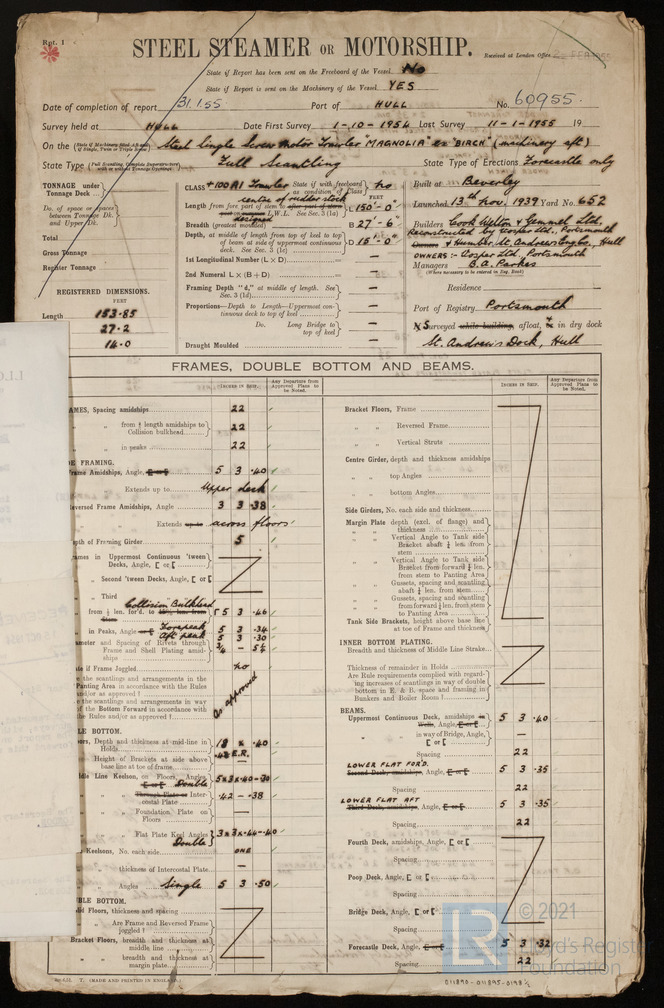 Rpt. 1
STEEL STEAMER OR MOTORSHIP.
Received at London Office
State if Report has been sent on the Freeboard of the Vessel No
State if Report is sent on the Machinery of the Vessel YES
Date of completion of report 31.1.55 Port of HULL No. 60955
Survey held at HULL Date First Survey 1-10-1954 Last Survey 11-1-1955 19
On the Steel Single Screw Motor Trawler "MAGNOLIA" ex "BIRCH" (machinery aft)
State Type Full Scantling State Type of Erections Forecastle only
TONNAGE under Tonnage Deck
Do. of space or spaces between Tonnage Dk. and Upper Dk.
Total
Gross Tonnage
Register Tonnage
REGISTERED DIMENSIONS.
FEET
Length 153.85
27.2
14.0
CLASS +100A1 Trawler State if with freeboard as condition of Class no
centre of rudder stock
Length from fore part of stem L.W.L. See Sec. 3 (1a) L 150'-0"
Breadth (greatest moulded) B 27'-6"
Depth, at middle of length from top of keel to top of beam at side of uppermost continuous deck. See Sec. 3 (1c) D 15'-0"
1st Longitudinal Number (L × D) —
2nd Numeral L × (B + D) —
Framing Depth "d," at middle of length. See Sec. 3 (1d) —
Proportions—Depth to Length—Uppermost continuous deck to top of keel —
Do. Long Bridge to top of keel —
Draught Moulded —
Built at Beverley
Launched 13th Nov. 1939 Yard No. 652
Builders Cook Welton & Gemmel Ltd.
Reconstructed by Vosper Ltd., Portsmouth
& Humber St. Andrews Engrs., Hull
OWNERS:- Vosper Ltd., Portsmouth
Managers B.A. Parkes
(Where necessary to be entered in Reg. Book)
Residence
Port of Registry Portsmouth
Surveyed while building, afloat, & in dry dock
St. Andrew's Dock, Hull
FRAMES, DOUBLE BOTTOM AND BEAMS.
INCHES IN SHIP.
Any Departure from Approved Plans to be Noted.
INCHES IN SHIP.
Any Departure from Approved Plans to be Noted.
AMES, Spacing amidships 22
" " from ⅕ length amidships to Collision bulkhead 22
" " in peaks 22
DE FRAMING.
Frame Amidships, Angle 5 3 .40
Extends up to Upper deck
eversed Frame Amidships, Angle 3 3 .38
Extends up to across floors
epth of Framing Girder 5
ames in Uppermost Continuous 'tween Decks, Angle, [ or [
" Second 'tween Decks, Angle, [ or [
" Third
Collision Bulkhead
" from ⅕ len. for'd. to 5 3 .46
" in Peaks, Angle Forepeak 5 3 .34
Aft peak 5 3 .30
ameter and Spacing of Rivets through Frame and Shell Plating amidships 3/4 - 5¼
te if Frame Joggled no
e the scantlings and arrangements in the Panting Area in accordance with the Rules and/or as approved?
e the scantlings and arrangements in way of the Bottom Forward in accordance with the Rules and/or as approved?
as approved
LE BOTTOM.
ors, Depth and thickness at mid-line in Holds 18 × .40
.42 E.R.
Height of Brackets at side above base line at toe of frame —
ddle Line Keelson, on Floors, Angles Double 5x3x.40-.30
" " Through Plate or Intercostal Plate .42 - .38
" " Foundation Plate on Floors —
" " Flat Plate Keel Angles Double 3x3x.44-.40
Keelsons, No. each side ONE
" thickness of Intercostal Plate —
" Angles Single 5 3 .50
BLE BOTTOM.
lid Floors, thickness and spacing
" Are Frame and Reversed Frame joggled?
Bracket Floors, breadth and thickness at middle line
" breadth and thickness at margin plate
Bracket Floors, Frame
" " Reversed Frame
" " Vertical Struts
Centre Girder, depth and thickness amidships
" top Angles
" bottom Angles
Side Girders, No. each side and thickness
Margin Plate depth (excl. of flange) and thickness
" " Vertical Angle to Tank side Bracket abaft ¼ len. from stem
" " Vertical Angle to Tank side Bracket from forward ¼ len. from stem to Panting Area
" " Gussets, spacing and scantling abaft ¼ len. from stem
" " Gussets, spacing and scantling from forward ¼ len. from stem to Panting Area
Tank Side Brackets, height above base line at toe of Frame and thickness
INNER BOTTOM PLATING.
Breadth and thickness of Middle Line Strake
Thickness of remainder in Holds
Are Rule requirements complied with regarding increases of scantlings in way of double bottom in E. & B. space and framing in Bunkers and Boiler Room?
BEAMS.
Uppermost Continuous Deck, amidships 5 3 .40
" " in way of Bridge, Angle, [ or [ —
Spacing 22
LOWER FLAT FOR'D.
Second Deck, amidships, Angle, [ or [ 5 3 .35
Spacing 22
LOWER FLAT AFT
Third Deck, amidships, Angle, [ or [ 5 3 .35
Spacing 22
Fourth Deck, amidships, Angle, [ or [
Spacing
Poop Deck, Angle, [ or [
Spacing
Bridge Deck, Angle, [ or [
Spacing
Forecastle Deck, Angle, [ or [ 5 3 .32
Spacing 22
(MADE AND PRINTED IN ENGLAND)
© 2021
Lloyd's Register
Foundation
011890-011895-0198½